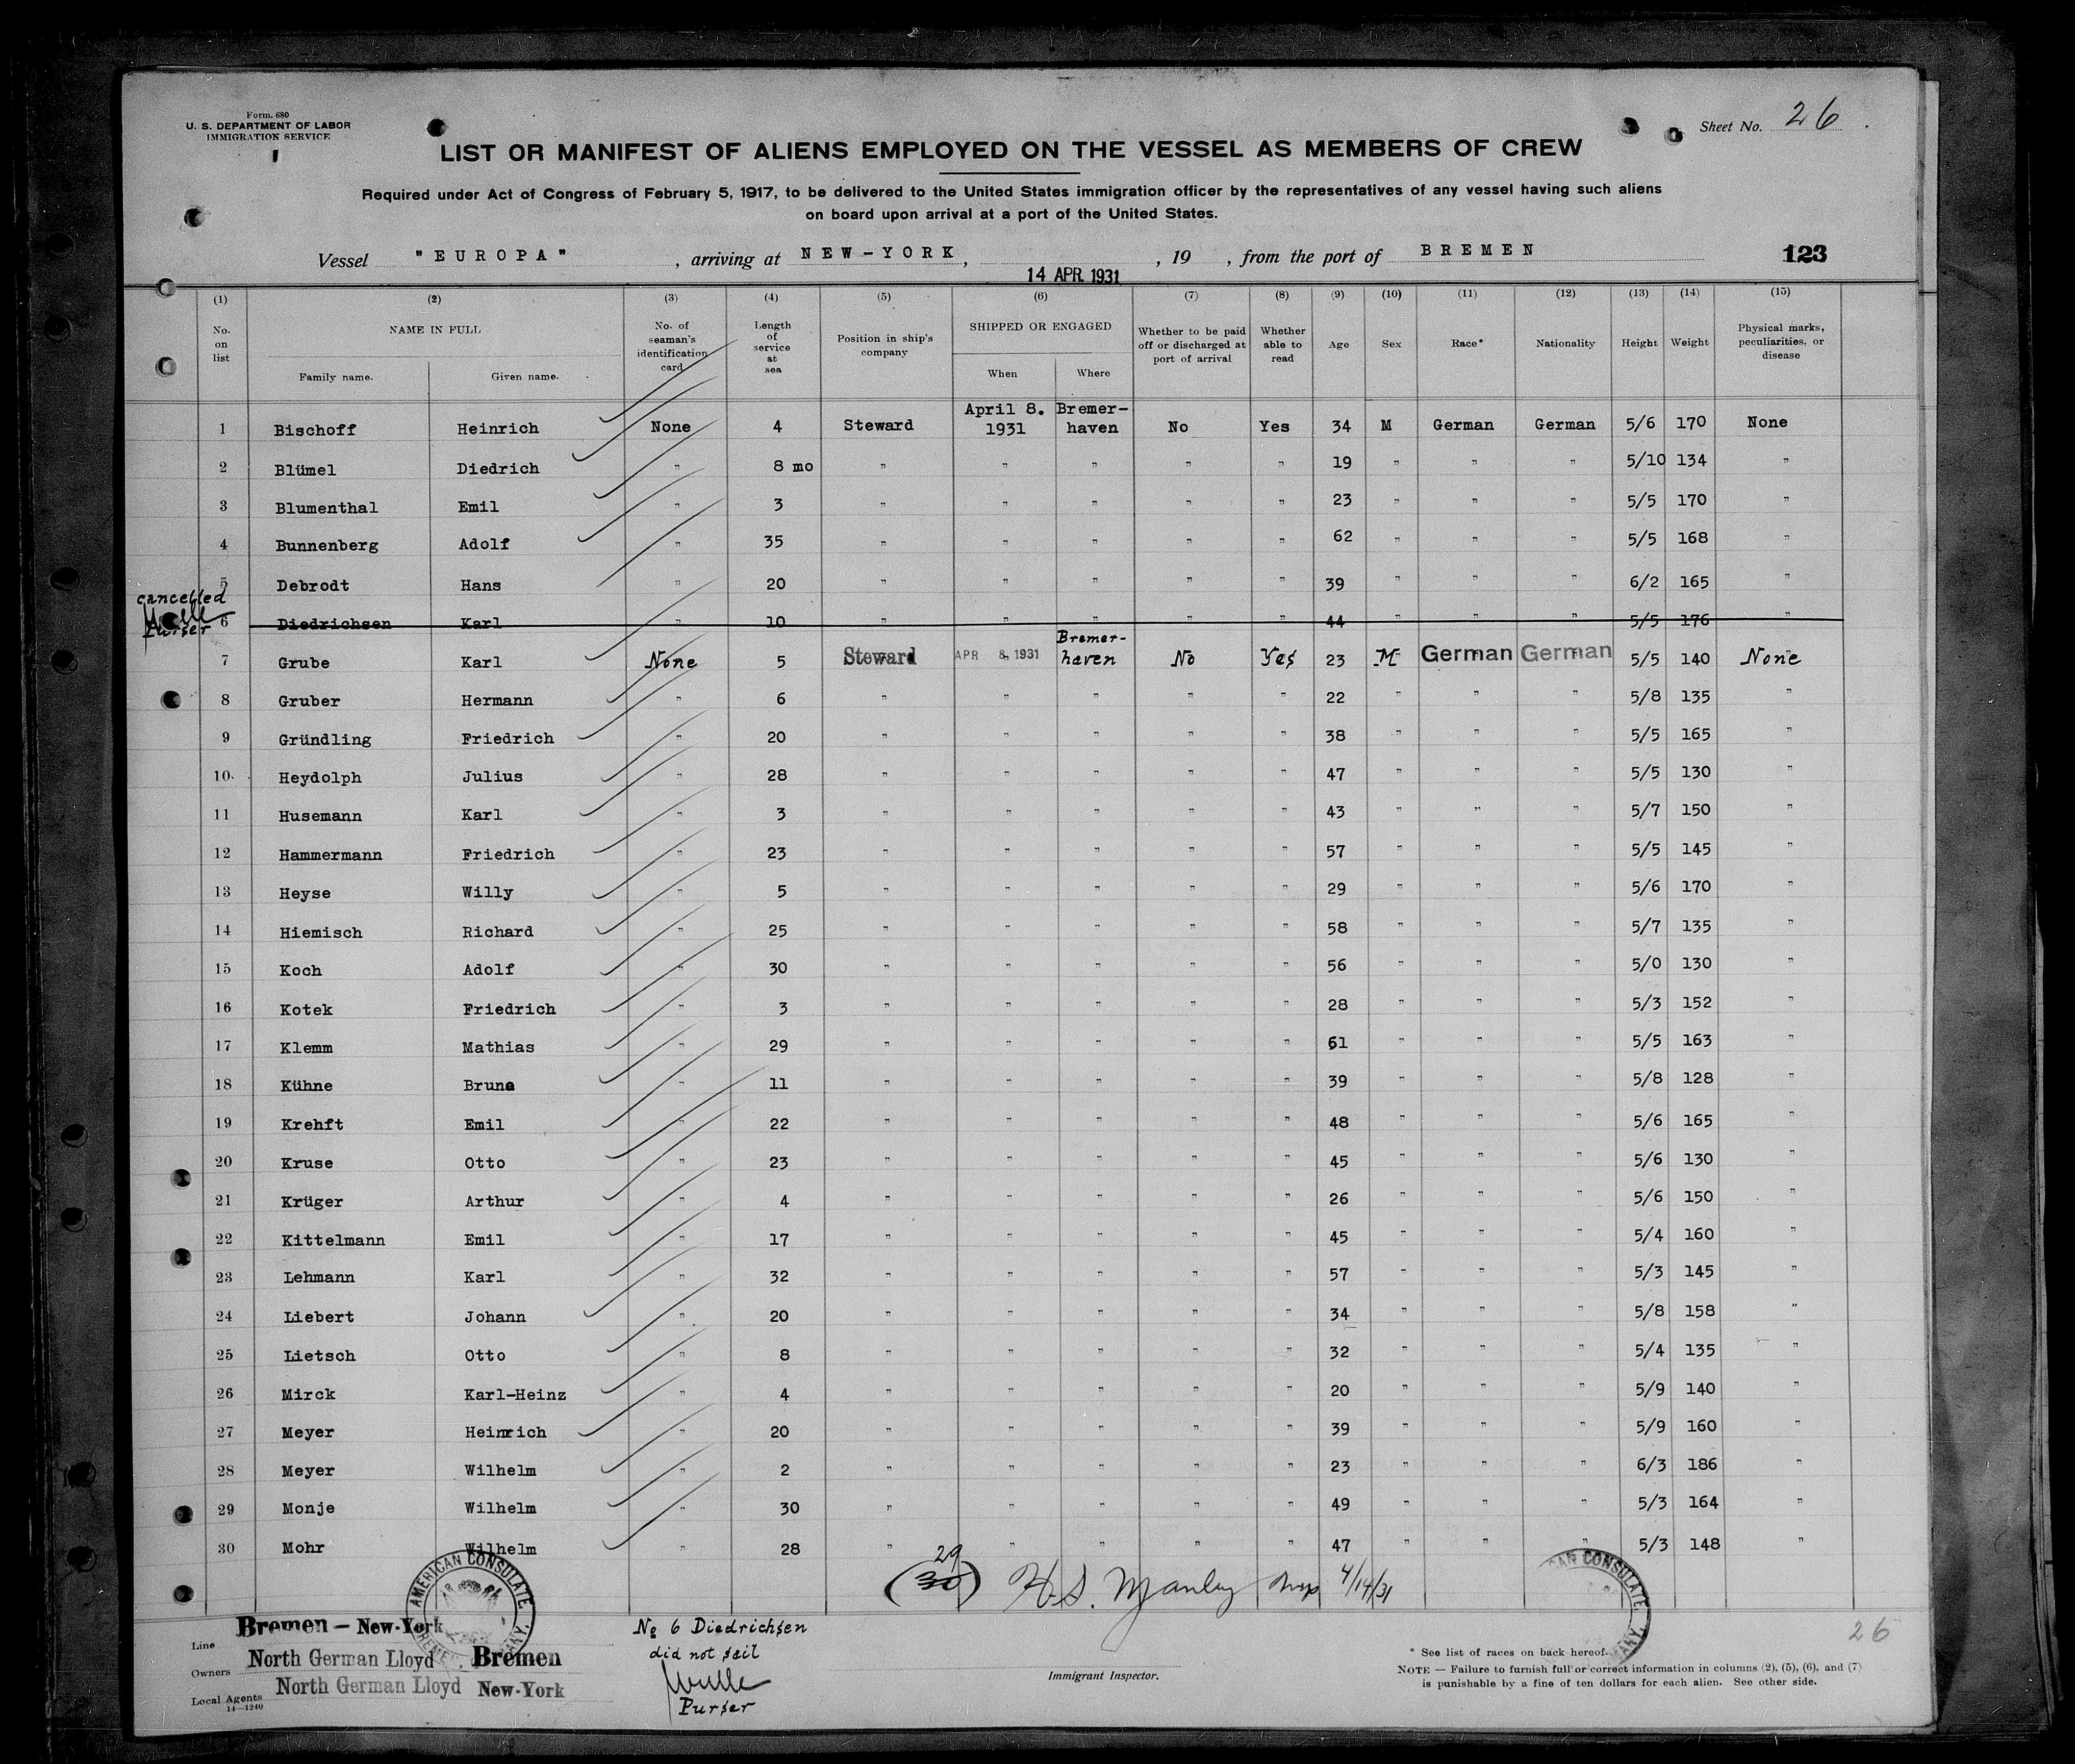 Form. 680
U. S. DEPARTMENT OF LABOR
IMMIGRATION SERVICE
Sheet No. 26
LIST OR MANIFEST OF ALIENS EMPLOYED ON THE VESSEL AS MEMBERS OF CREW
Required under Act of Congress of February 5, 1917, to be delivered to the United States immigration officer by the representatives of any vessel having such aliens
on board upon arrival at a port of the United States.
Vessel "EUROPA", arriving at NEW-YORK, 14 APR. 1931, 19 , from the port of BREMEN 123
(1) (2) (3) (4) (5) (6) (7) (8) (9) (10) (11) (12) (13) (14) (15)
No. on list NAME IN FULL Family name. Given name. No. of seaman's identification card Length of service at sea Position in ship's company SHIPPED OR ENGAGED When Where Whether to be paid off or discharged at port of arrival Whether able to read Age Sex Race* Nationality Height Weight Physical marks, peculiarities, or disease
1 Bischoff Heinrich None 4 Steward April 8. 1931 Bremer-haven No Yes 34 M German German 5/6 170 None
2 Blümel Diedrich " 8 mo " " " " " 19 " " " 5/10 134 "
3 Blumenthal Emil " 3 " " " " " 23 " " " 5/5 170 "
4 Bunnenberg Adolf " 35 " " " " " 62 " " " 5/5 168 "
5 Debrodt Hans " 20 " " " " " 39 " " " 6/2 165 "
cancelled
Purser
6 Diedrichsen Karl " 10 " " " " " 44 " " " 5/5 176 "
7 Grube Karl None 5 Steward APR 8, 1931 Bremer-haven No Yes 23 M German German 5/5 140 None
8 Gruber Hermann " 6 " " " " " 22 " " " 5/8 135 "
9 Gründling Friedrich " 20 " " " " " 38 " " " 5/5 165 "
10. Heydolph Julius " 28 " " " " " 47 " " " 5/5 130 "
11 Husemann Karl " 3 " " " " " 43 " " " 5/7 150 "
12 Hammermann Friedrich " 23 " " " " " 57 " " " 5/5 145 "
13 Heyse Willy " 5 " " " " " 29 " " " 5/6 170 "
14 Hiemisch Richard " 25 " " " " " 58 " " " 5/7 135 "
15 Koch Adolf " 30 " " " " " 56 " " " 5/0 130 "
16 Kotek Friedrich " 3 " " " " " 28 " " " 5/3 152 "
17 Klemm Mathias " 29 " " " " " 51 " " " 5/5 163 "
18 Kühne Bruno " 11 " " " " " 39 " " " 5/8 128 "
19 Krehft Emil " 22 " " " " " 48 " " " 5/6 165 "
20 Kruse Otto " 23 " " " " " 45 " " " 5/6 130 "
21 Krüger Arthur " 4 " " " " " 26 " " " 5/6 150 "
22 Kittelmann Emil " 17 " " " " " 45 " " " 5/4 160 "
23 Lehmann Karl " 32 " " " " " 57 " " " 5/3 145 "
24 Liebert Johann " 20 " " " " " 34 " " " 5/8 158 "
25 Lietsch Otto " 8 " " " " " 32 " " " 5/4 135 "
26 Mirck Karl-Heinz " 4 " " " " " 20 " " " 5/9 140 "
27 Meyer Heinrich " 20 " " " " " 39 " " " 5/9 160 "
28 Meyer Wilhelm " 2 " " " " " 23 " " " 6/3 186 "
29 Monje Wilhelm " 30 " " " " " 49 " " " 5/3 164 "
30 Mohr Wilhelm " 28 " " " " " 47 " " " 5/3 148 "
29
(30) H.S. Manley Insp 4/14/31
AMERICAN CONSULATE
BREMEN, GERMANY.
CAN CONSULATE
Line Bremen – New-York
Owners North German Lloyd Bremen
Local Agents North German Lloyd New-York
14—1240
No 6 Diedrichsen
did not sail
Purser
Immigrant Inspector.
26
* See list of races on back hereof.
NOTE — Failure to furnish full or correct information in columns (2), (5), (6), and (7)
is punishable by a fine of ten dollars for each alien. See other side.